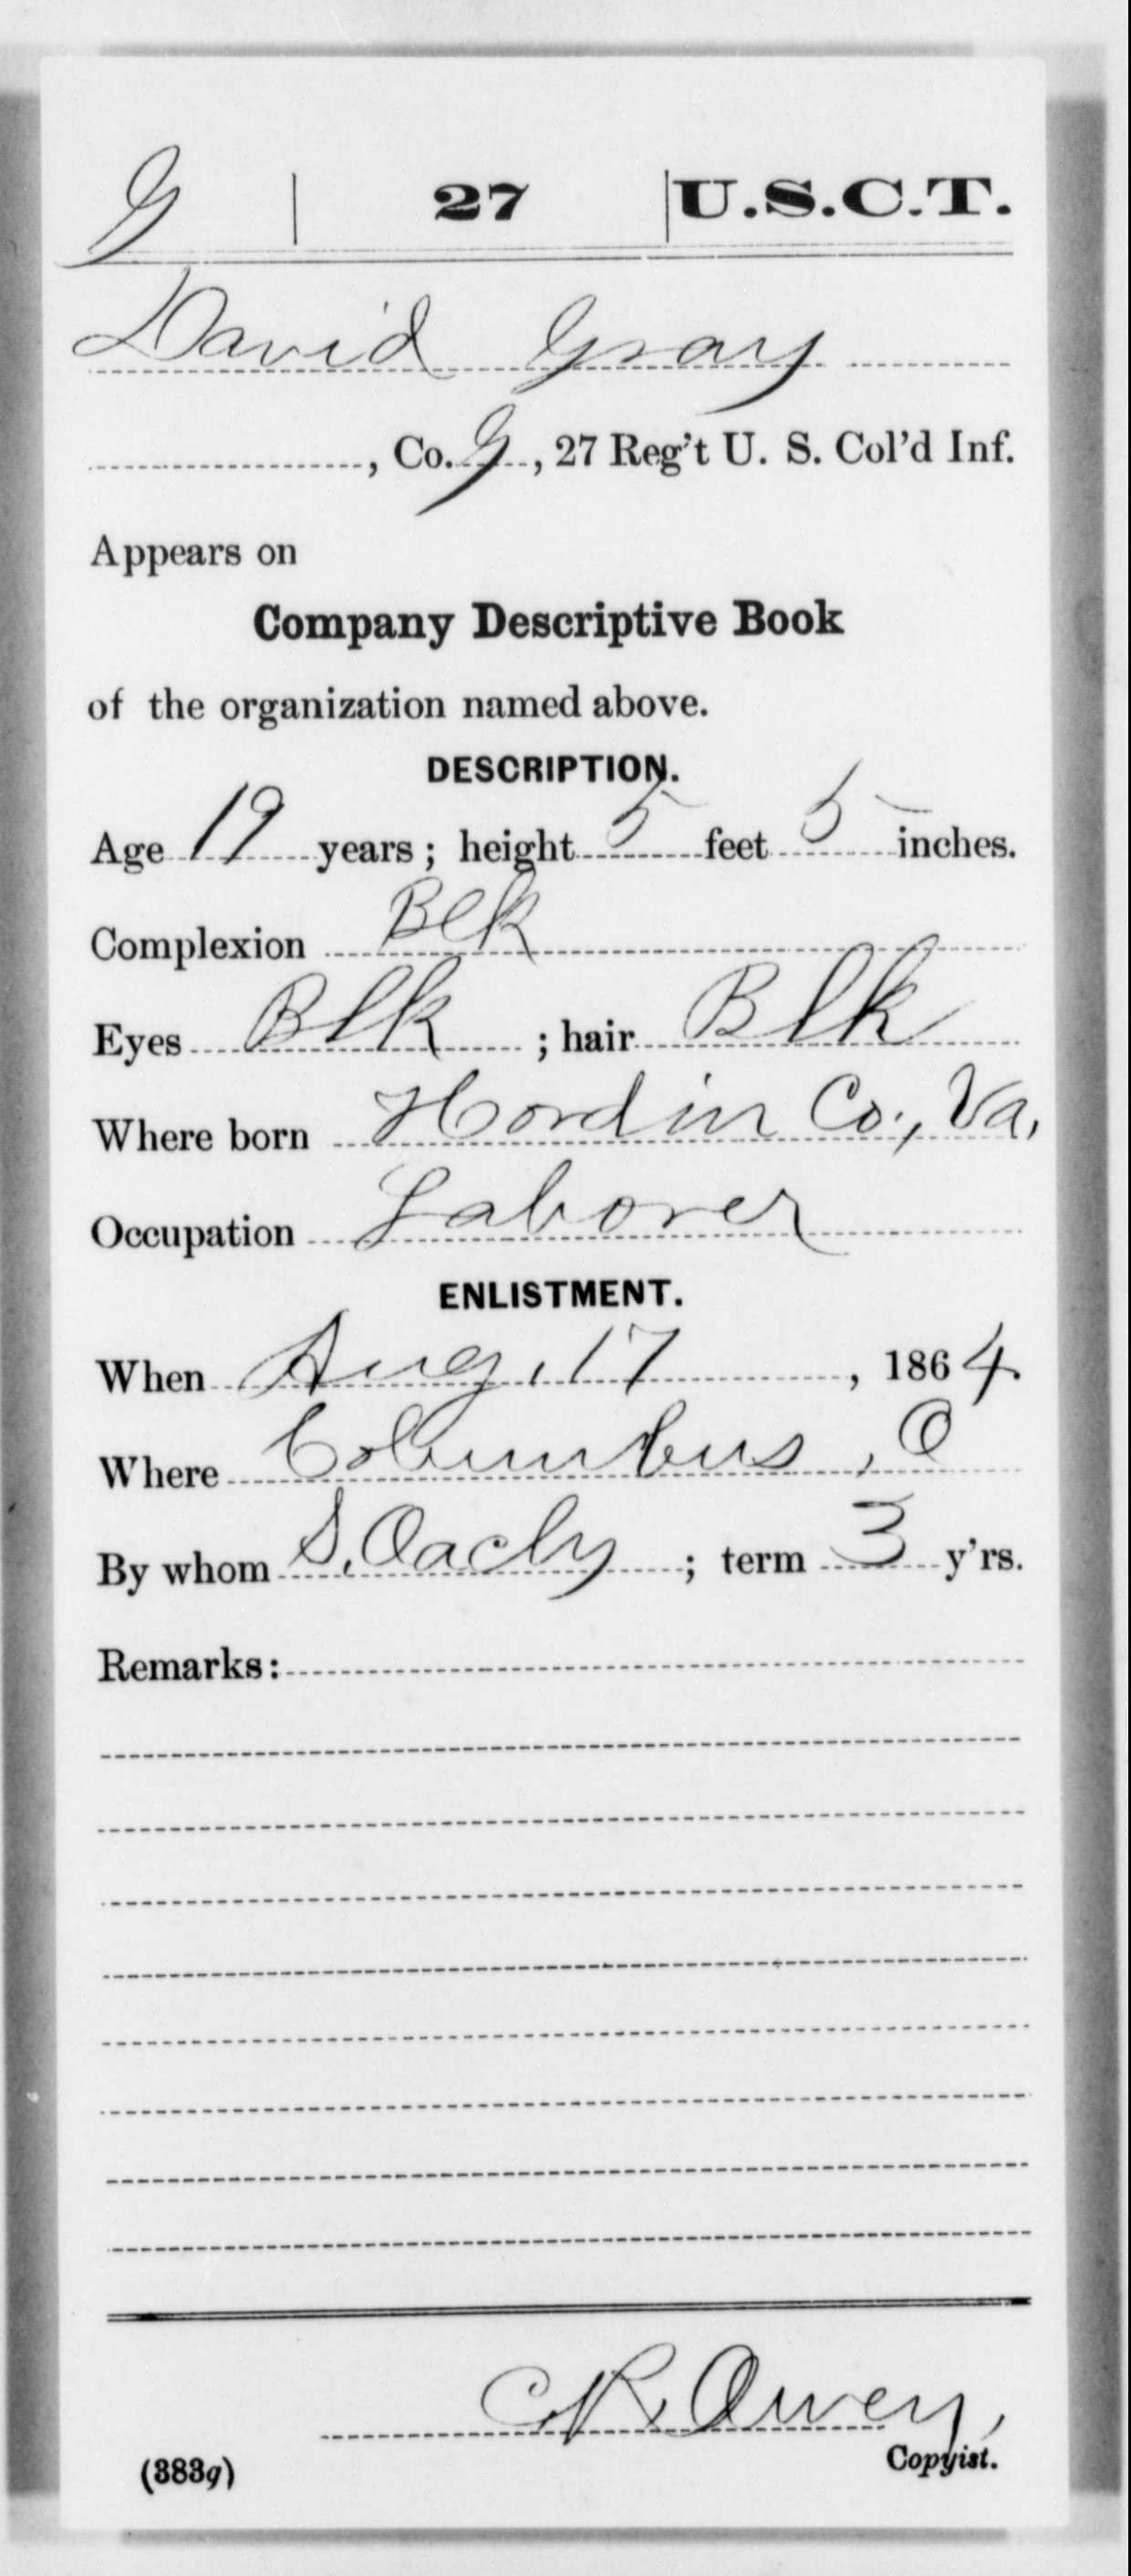 G | 27 | U.S.C.T.
David Gray
, Co. G, 27 Reg't U. S. Col'd Inf.
Appears on
Company Descriptive Book
of the organization named above.
DESCRIPTION.
Age 19 years; height 5 feet 5 inches.
Complexion Blk
Eyes Blk ; hair Blk
Where born Hordin Co., Va,
Occupation Laborer
ENLISTMENT.
When Aug. 17, 1864.
Where Columbus, O
By whom S. ; term 3 y'rs.
Remarks:
C R Owen,
Copyist.
(383g)